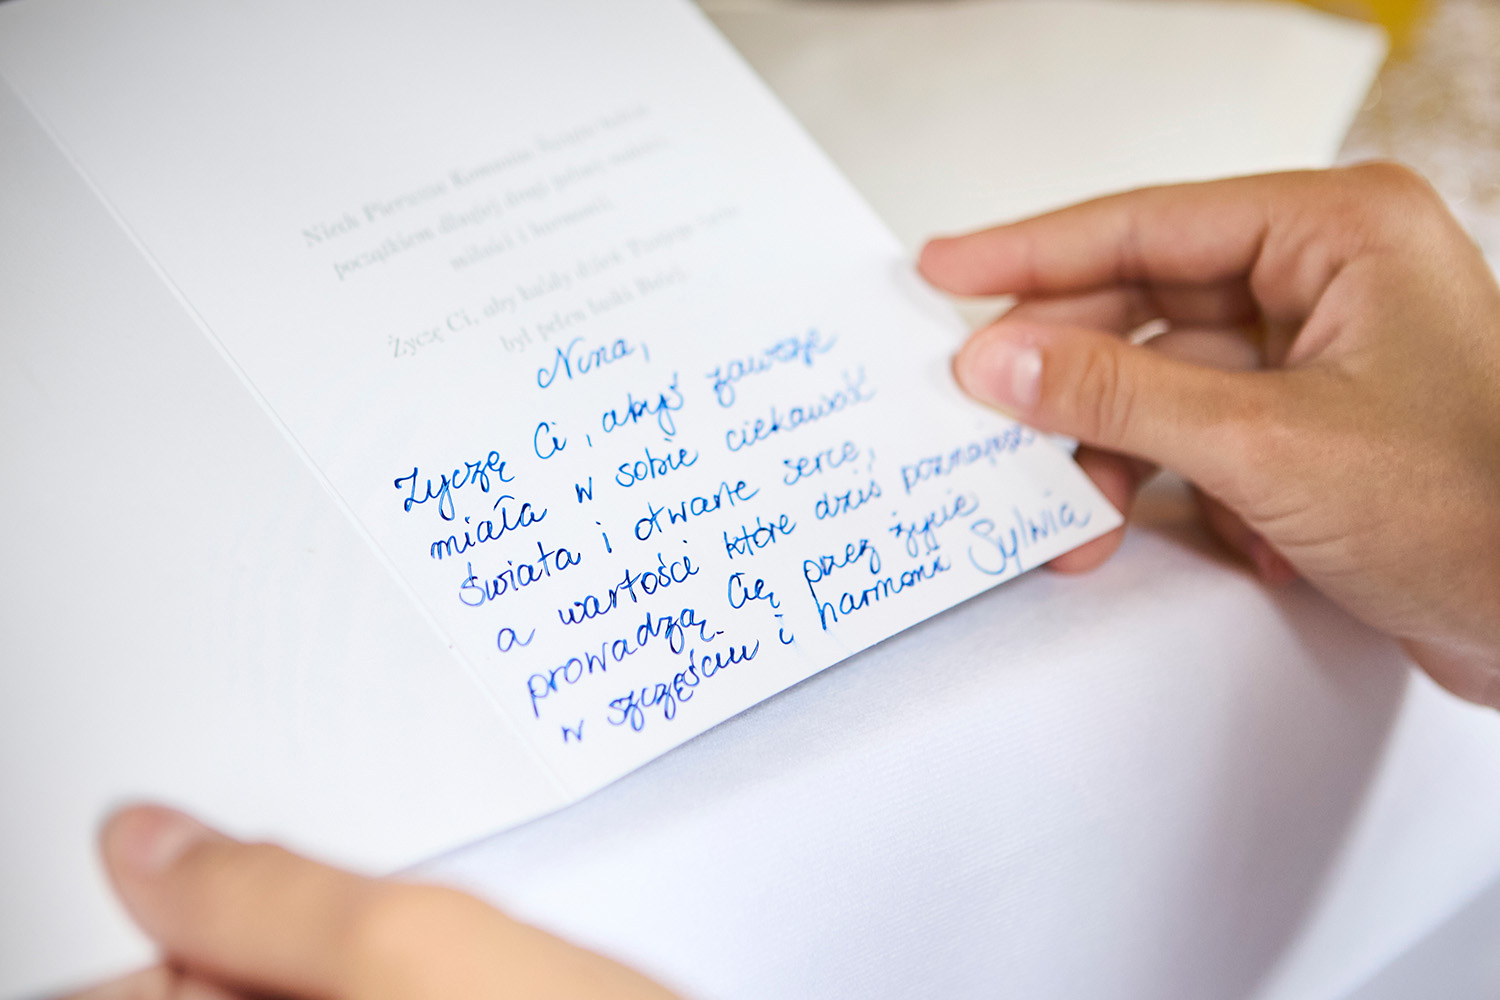 Niech Pierwsza Komunia Święta będzie
początkiem długiej drogi pełnej radości,
miłości i harmonii.
Życzę Ci, aby każdy dzień Twojego życia
był pełen łaski Bożej.
Nina,
Życzę Ci, abyś zawsze
miała w sobie ciekawość
świata i otwarte serce,
a wartości które dziś poznajesz
prowadzą Cię przez życie
w szczęściu i harmonii Sylwia